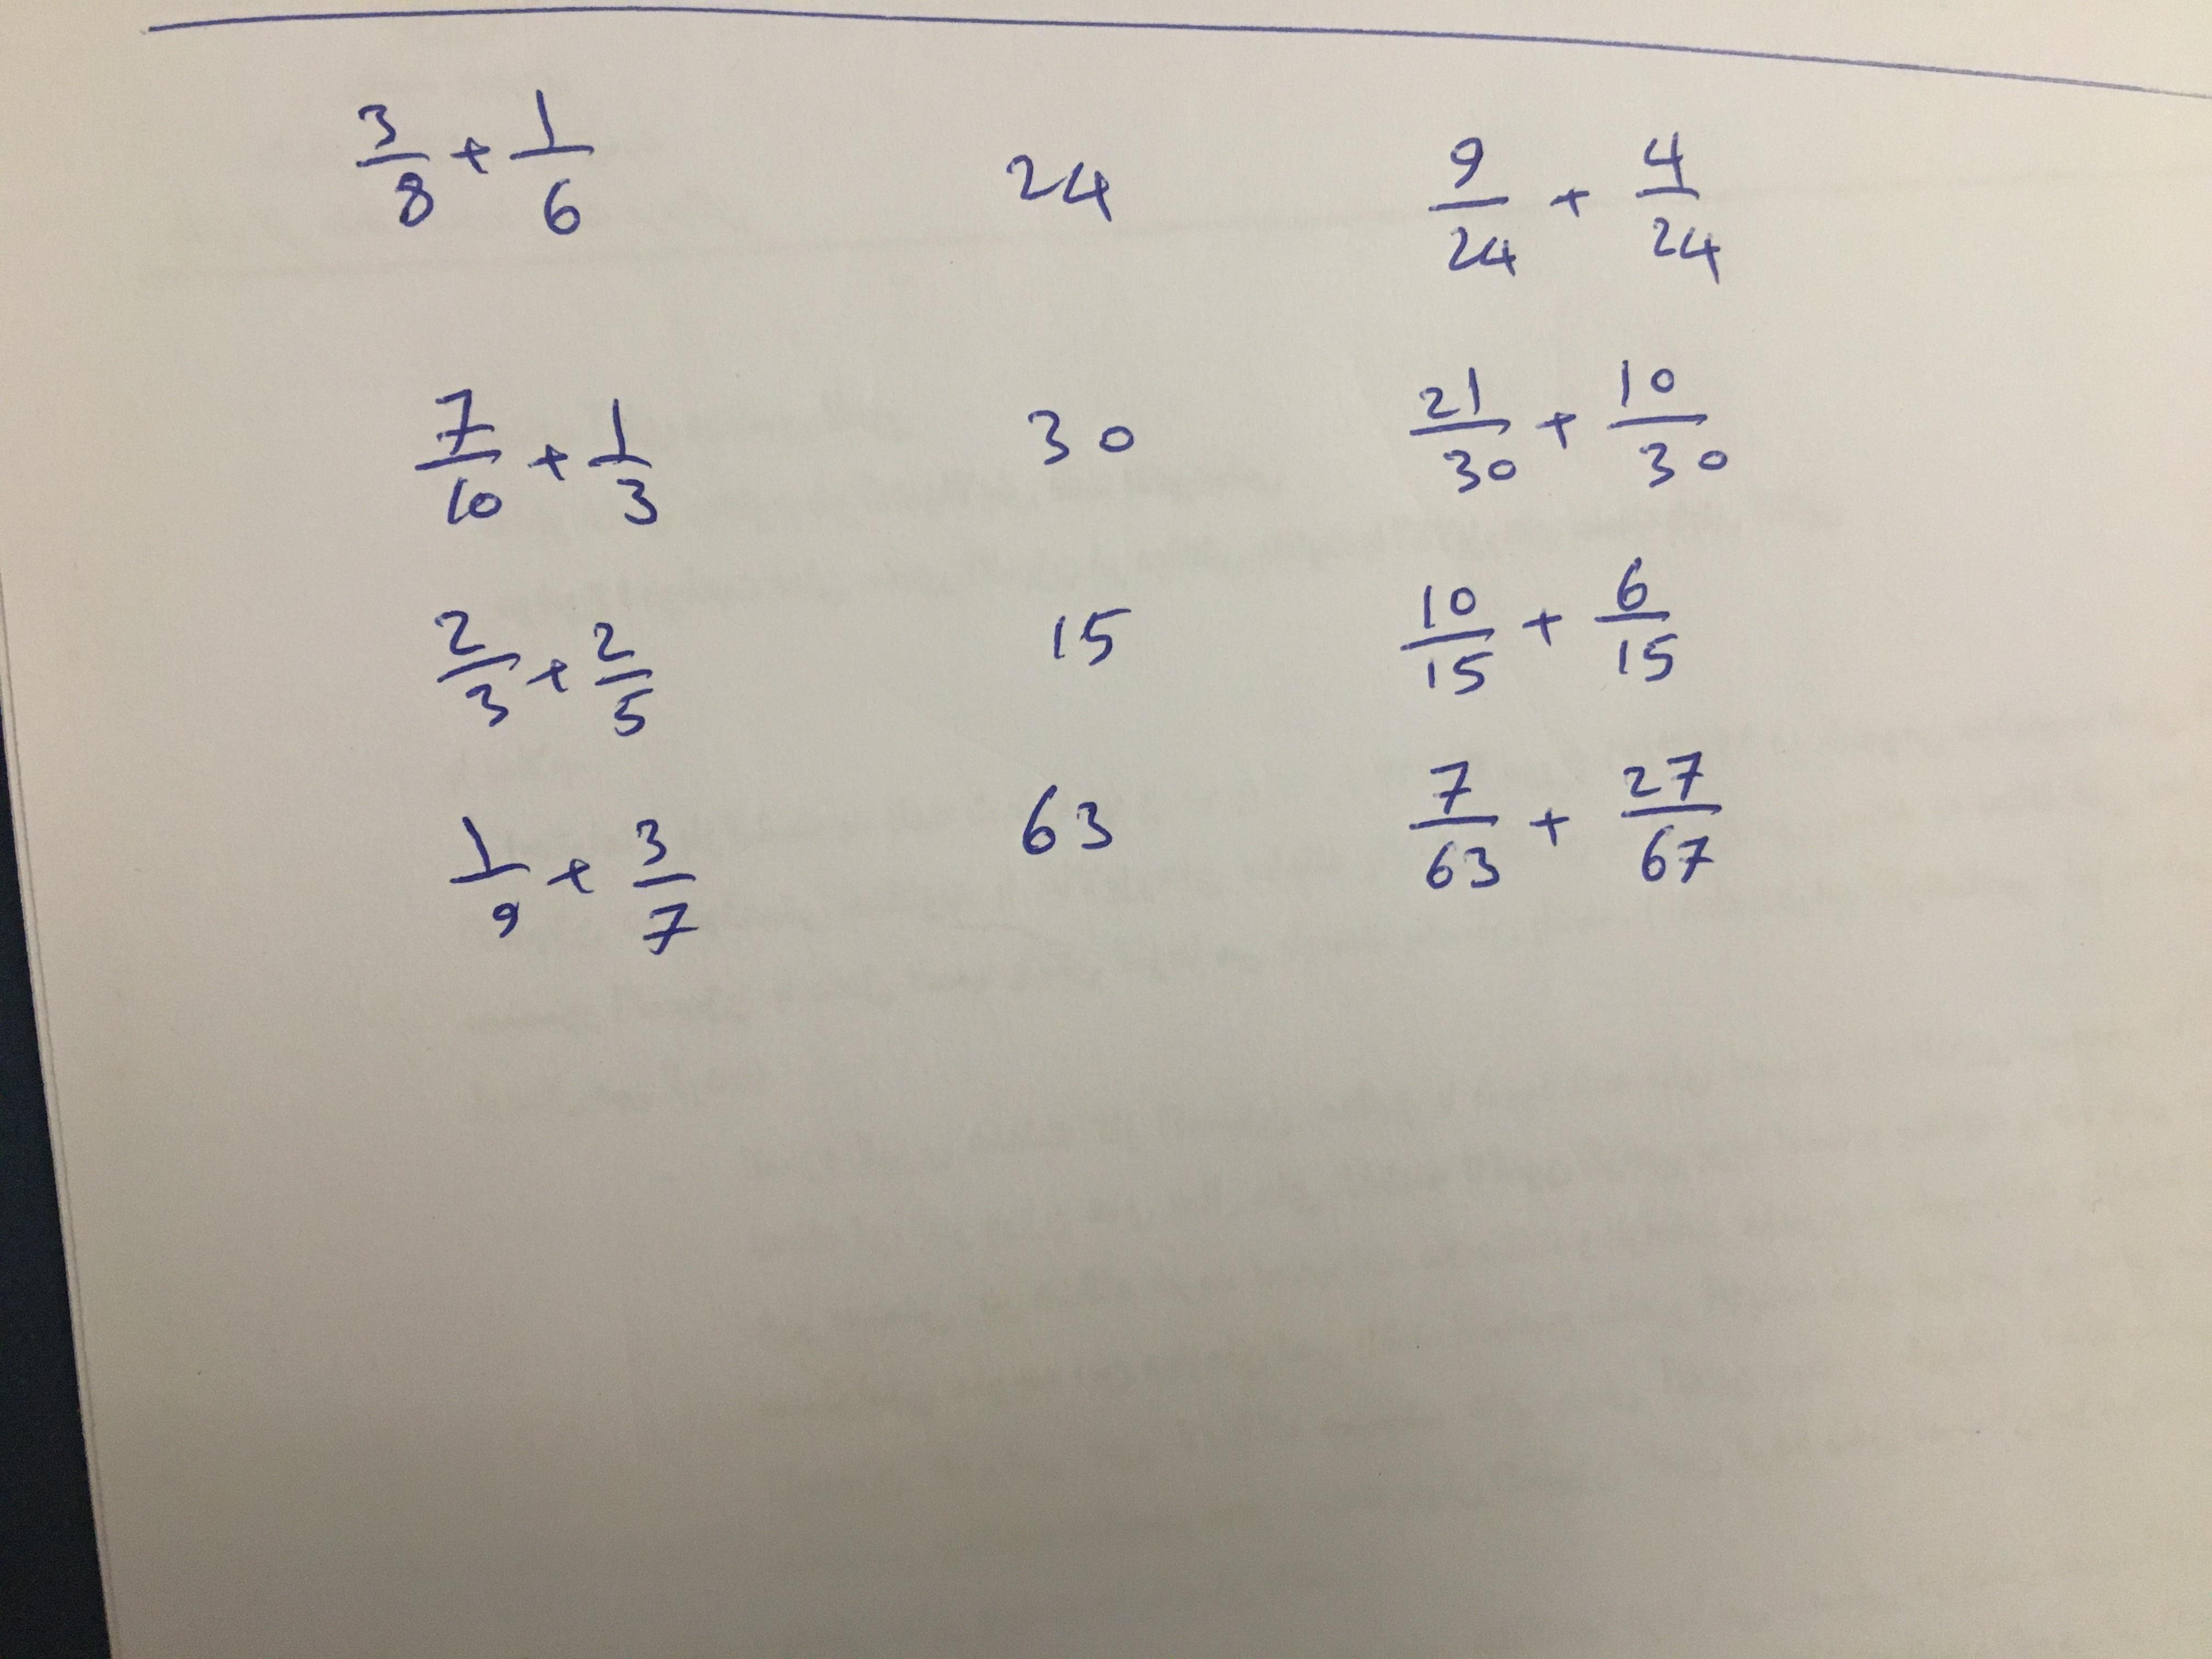 3/8 + 1/6 24 9/24 + 4/24
7/10 + 1/3 30 21/30 + 10/30
2/3 + 2/5 15 10/15 + 6/15
1/9 + 3/7 63 7/63 + 27/67